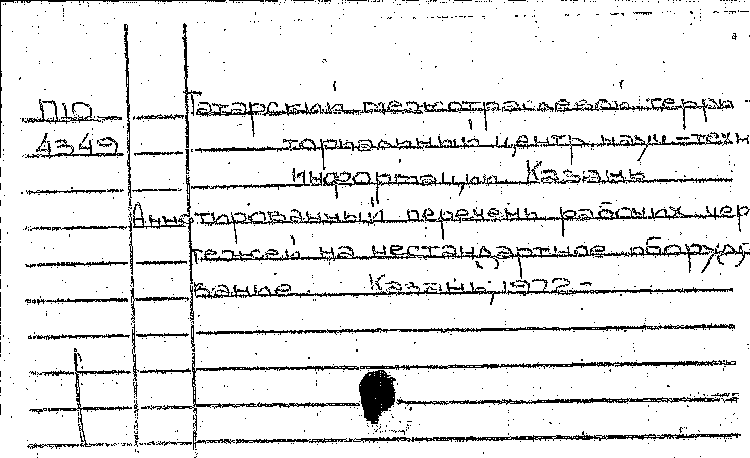 П10 Татарский межотраслевой терри-
4349 ториальный центр науч.-техн
информации. Казань
Аннотированный перечень рабочих чер
тежей на нестандартное оборудо
вание. Казань, 1972-